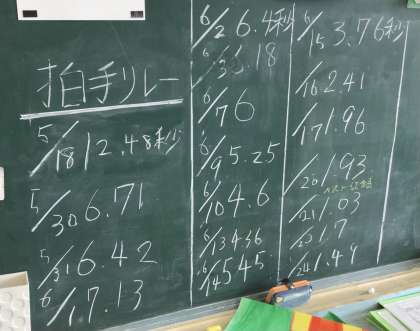 拍手リレー
5/18 12.48秒
5/30 6.71
5/31 6.42
6/1 7.13
6/2 6.4秒
6/3 6.18
6/7 6
6/9 5.25
6/10 4.6
6/13 4.36
6/14 5.45
6/15 3.76秒
/16 2.41
/17 1.96
/20 1.93
/21 1.03
1.7
/24 1.49